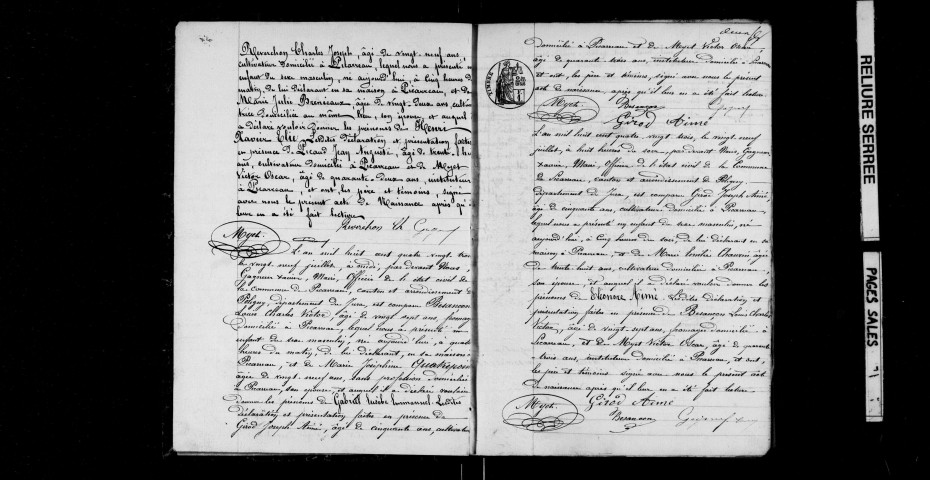 Reverchon Charles Joseph, âgé de vingt neuf ans
cultivateur domicilié à Picarreau, lequel nous a présenté un
enfant du sexe masculin, né aujourd'hui, à cinq heures du
matin, de lui déclarant en sa maison à Picarreau, et de
Marie Julie, âgée de vingt-deux ans, cultiva
trice domiciliée au même lieu, son épouse, et auquel
a déclaré vouloir donner les prénoms de Henri
Xavier. Lesdites déclaration et présentation faites
en présence de Picaud Jean Auguste, âgé de trente
ans, cultivateur domicilié à Picarreau et de Myet
Victor Oscar, âgé de quarante-deux ans, instituteur
à Picarreau, et ont, les père et témoins, signé
avec nous le présent acte de Naissance après qu'il
leur en a été fait lecture.
Reverchon Ch
Myet.
L'an mil huit cent quatre vingt trois
le vingt neuf juillet, à midi, par devant Nous,
Gagneur Xavier, Maire, Officier de l'état civil de
la commune de Picarreau, canton et arrondissement de
Poligny, département du Jura, est comparu Besançon
Louis Charles Victor, âgé de vingt sept ans, fromager
domicilié à Picarreau, lequel nous a présenté un
enfant du sexe masculin, né aujourd'hui, à quatre
heures du matin, de lui déclarant, en sa maison à
Picarreau, et de Marie Joséphine
âgée de vingt neuf ans, sans profession domiciliée
à Picarreau, son épouse, et auquel il a déclaré vouloir
donner les prénoms de Gabriel Emmanuel. Lesdites
déclaration et présentation faites en présence de
Girod Joseph Aimé, âgé de cinquante ans, cultivateur
domicilié à Picarreau et de Myet Victor Oscar,
âgé de quarante-trois ans, instituteur domicilié à Picarreau
et ont, les père et témoins, signé avec nous le présent
acte de naissance, après qu'il leur en a été fait lecture.
Myet.
Besançon
Girod Aimé
L'an mil huit cent quatre vingt trois, le vingt neuf
juillet, à huit heures du soir, par devant Nous, Gagneur
Xavier, Maire, Officier de l'état civil de la Commune
de Picarreau, canton et arrondissement de Poligny,
département du Jura, est comparu Girod Joseph Aimé,
âgé de cinquante ans, cultivateur domicilié à Picarreau,
lequel nous a présenté un enfant du sexe masculin, né
aujourd'hui, à cinq heures du soir, de lui déclarant en sa
maison à Picarreau, et de Marie Chauvin âgée
de trente huit ans, cultivatrice domiciliée à Picarreau,
son épouse, et auquel il a déclaré vouloir donner les
prénoms de Eléonore Aimé. Lesdites déclaration et
présentation faites en présence de Besançon Louis Charles
Victor, âgé de vingt-sept ans, fromager domicilié à
Picarreau, et de Myet Victor Oscar, âgé de quarante
-trois ans, instituteur domicilié à Picarreau, et ont,
les père et témoins signé avec nous le présent acte
de naissance après qu'il leur en a été fait lecture.
Myet.
Girod Aimé
Besançon
RELIURE SERREE
PAGES SALES